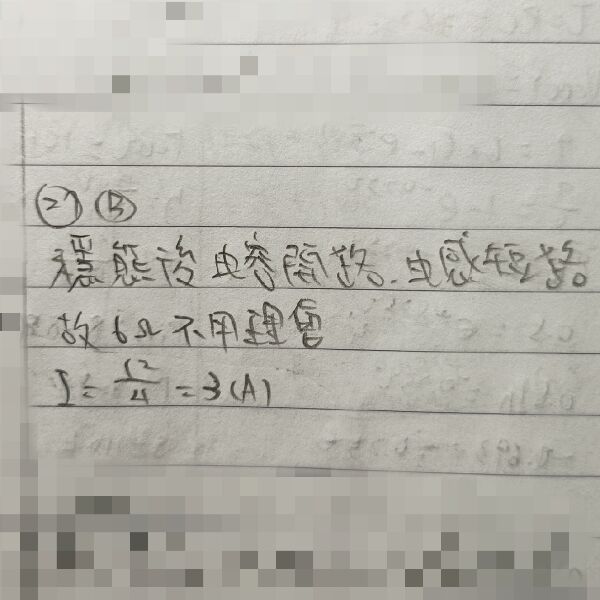 27 (B)
穩態後電容開路.電感短路
故6Ω不用理會
I=12/4=3(A)